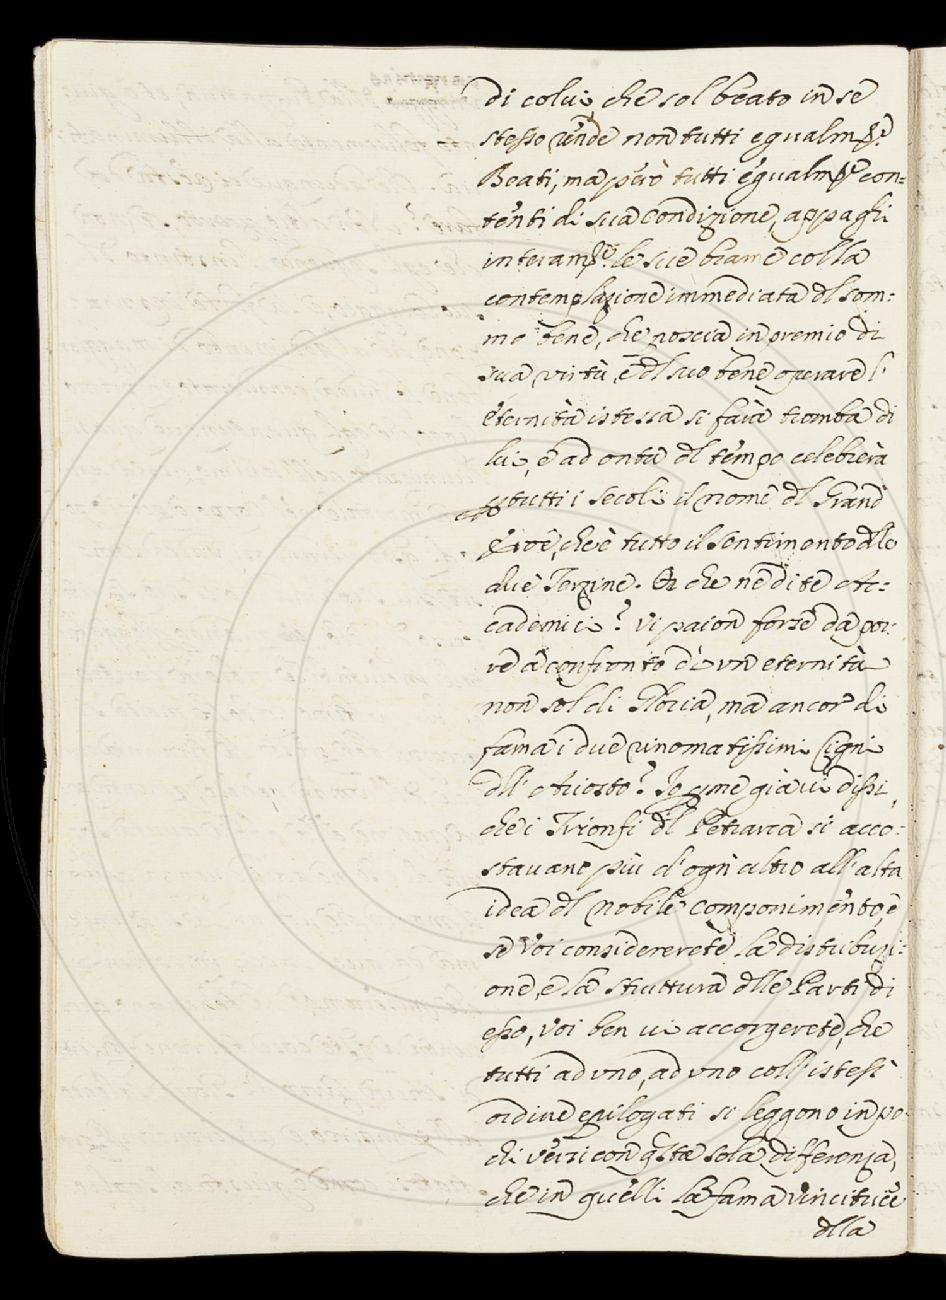 di colui, che sol beato in se
stesso rende non tutti egualmte
Beati, ma però tutti egualmte con=
tenti di sua condizione, appaghi
interamte le sue brame colla
contemplazione immediata dl som=
mo bene, che poscia in premio di
sua virtù, e dl suo bene operare l'
eternità istessa si farà tromba di
lui, e ad onta dl tempo celebrerà
p tutti i secoli il nome dl Grand
Eroe, che è tutto il sentimento dlle
due Terzine. Or che ne dite Ac=
cademici? Vi paion forse da por=
re a confronto di vn eternità
non sol di Gloria, ma ancor di
fama i due rinomatissimi Cigni
dll' Ariosto? Io come già vi dissi,
che i Trionfi dl Petrarca si acco=
stavano più d'ogn altro all'alta
idea dl nobile componimento, e
se voi considererete la distribuzi=
one, e la struttura dlle Parti di
esso, voi ben vi accorgerete, che
tutti ad vno, ad vno coll' istess
ordine epilogati si leggono in po
chi versi con qsta sola differenza,
che in quelli la fama vincitrice
dlla